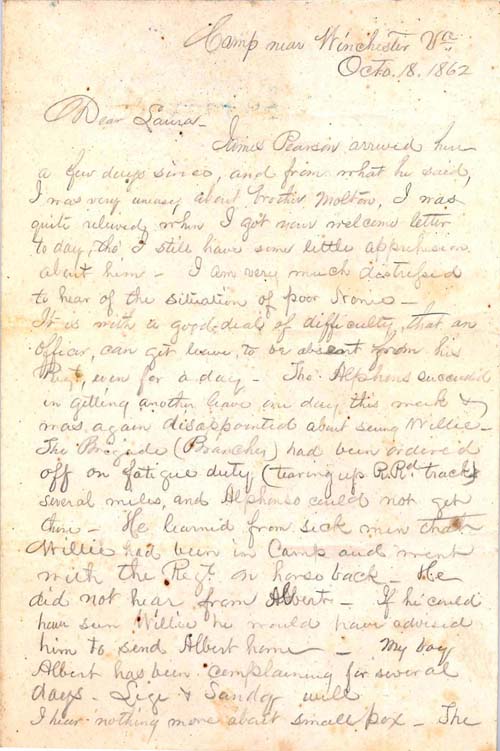 Camp near Winchester Va
Octo. 18. 1862
Dear Laura -
James Pearson arrived here
a few days since, and from what he said,
I was very uneasy about brother Molton, I was
quite relieved, when I got your welcome letter
to day, tho' I still have some little apprehension
about him - I am very much distressed
to hear of the situation of poor Nonie -
It is with a good deal of difficulty, that an
officer, can get leave, to be absent from his
Regt, even for a day - Tho' Alphonso succeeded
in getting another leave one day this week &
was again disappointed about seeing Willie -
The Brigade (Branches) had been ordered
off on fatigue duty (tearing up R.Rd track)
several miles, and Alphonso could not get
there - He learned from sick men that
Willie had been in Camp and went
with the Regt. on horse back - He
did not hear from Albert - If he could
have seen Willie he would have advised
him to send Albert home - My boy
Albert has been complaining for several
days - Lige & Sandy well
I hear nothing more about small pox - The